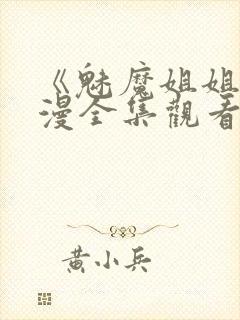 《魅魔姐姐
漫全集觀看
黃小兵